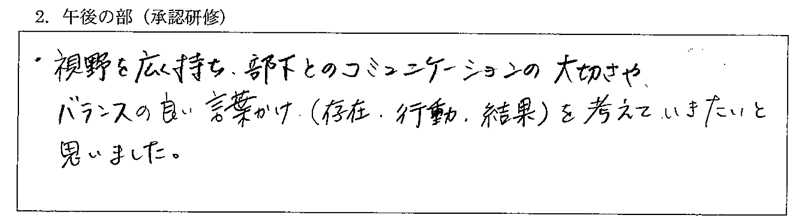 2. 午後の部（承認研修）
・視野を広く持ち、部下とのコミュニケーションの大切さや、
バランスの良い言葉かけ（存在、行動、結果）を考えていきたいと
思いました。